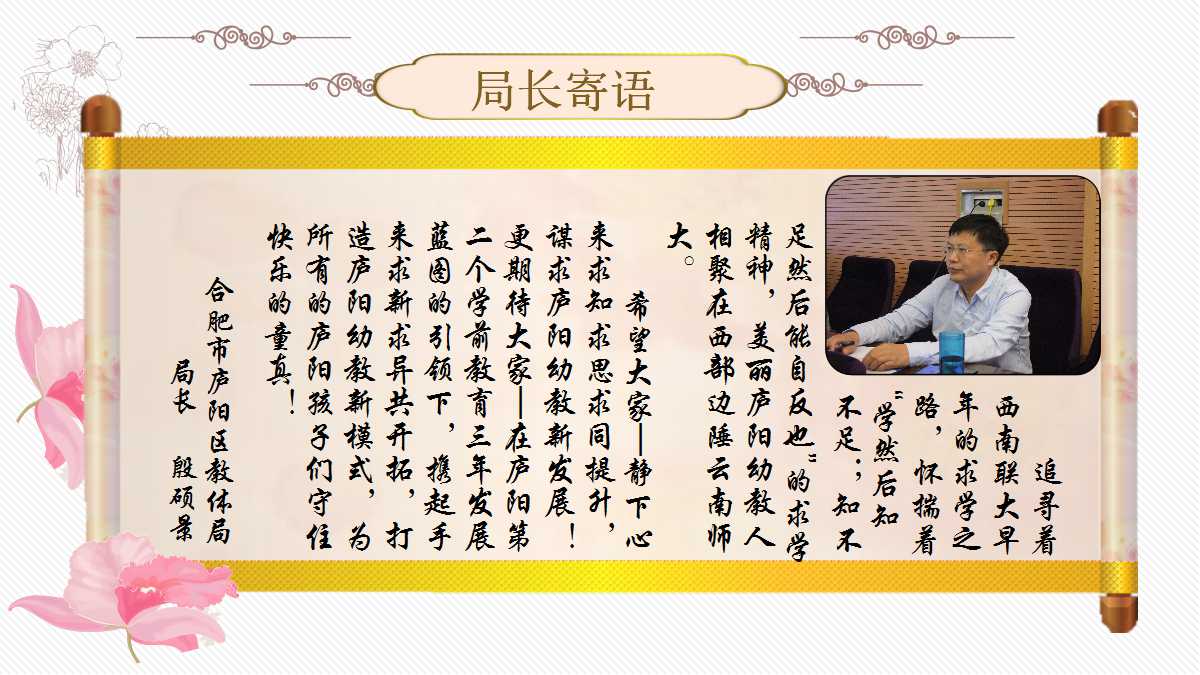 局长寄语
追寻着
西南联大早
年的求学之
路，怀揣着
“学然后知
不足；知不
足然后能自反也”的求学
精神，美丽庐阳幼教人
相聚在西部边陲云南师
大。
希望大家—静下心
来求知求思求同提升，
谋求庐阳幼教新发展！
更期待大家—在庐阳第
二个学前教育三年发展
蓝图的引领下，携起手
来求新求异共开拓，打
造庐阳幼教新模式，为
所有的庐阳孩子们守住
快乐的童真！
合肥市庐阳区教体局
局长 殷硕景